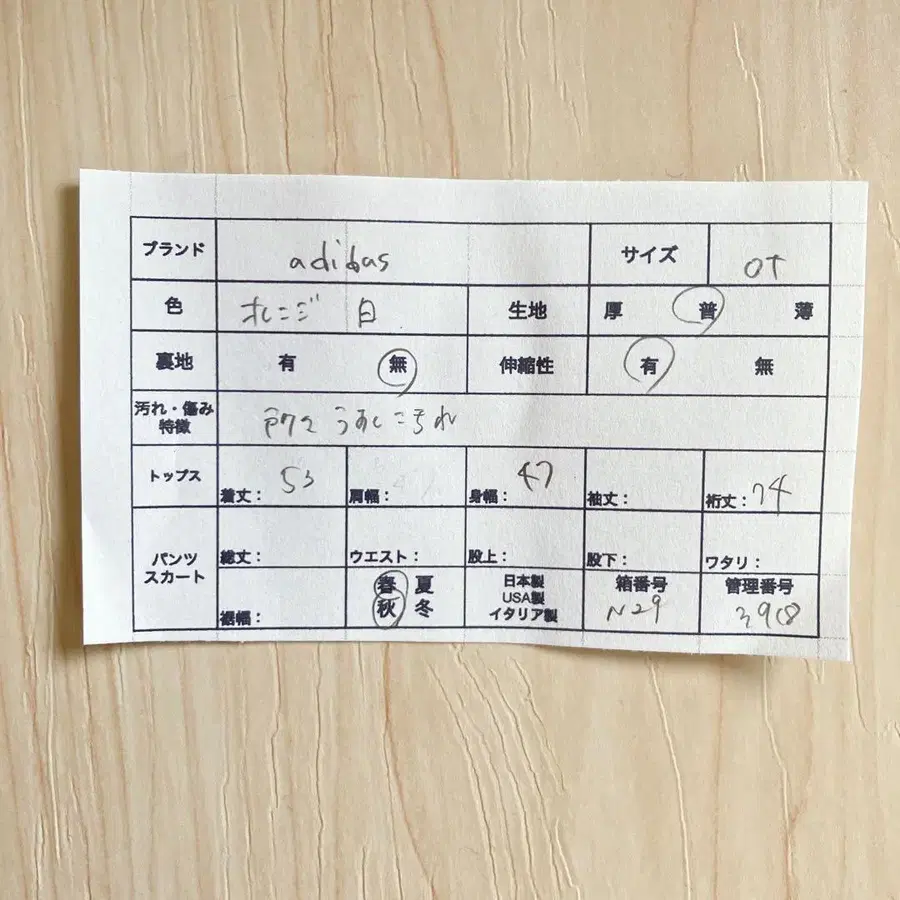 ブランド adidas サイズ OT
色 オレンジ 白 生地 厚 普 薄
裏地 有 無 伸縮性 有 無
汚れ・傷み
特徴 所々うすい汚れ
トップス 着丈: 53 肩幅: 身幅: 47 袖丈: 裄丈: 74
パンツ
スカート 総丈: ウエスト: 股上: 股下: ワタリ:
裾幅: 春 夏
秋 冬
日本製
USA製
イタリア製
箱番号
N29
管理番号
3908